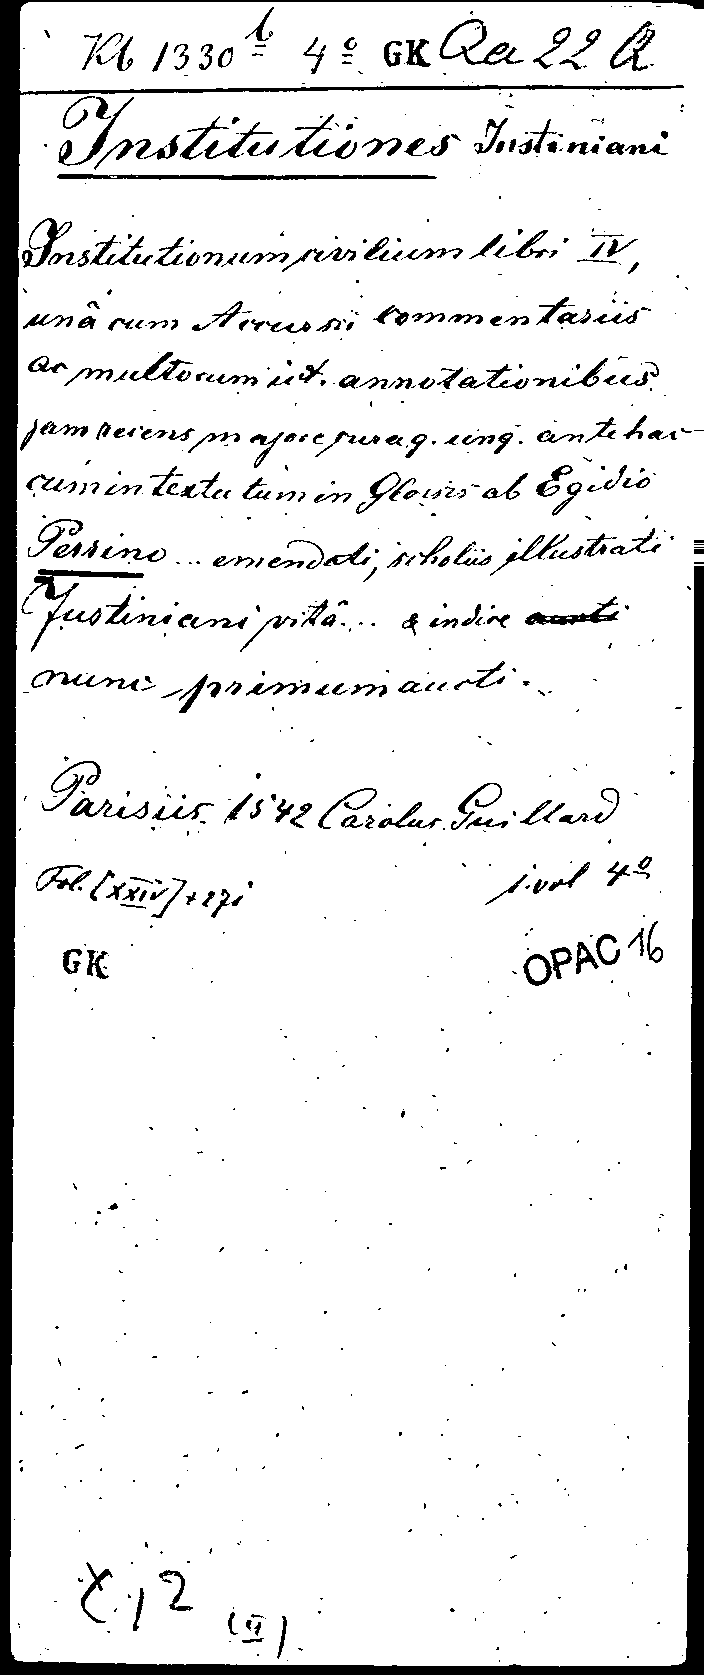 Kb 1330 b 4º GK Qa 22 R
Institutiones Justiniani
Institutionum civilium libri IV,
unâ cum Accursii commentariis
ac multorum ict. annotationibus
jam recens majore cura q. unq. antehac
cum in textu tum in Glossis ab Egidio
Perrino ... emendati, scholiis illustrati
Justiniani vitâ ... & indice aucti
nunc primum aucti.
Parisiis. 1542 Carolus Guillard
Fol. [XXIV] + 271
1 vol 4º
GK
OPAC 16
, 2
(II)